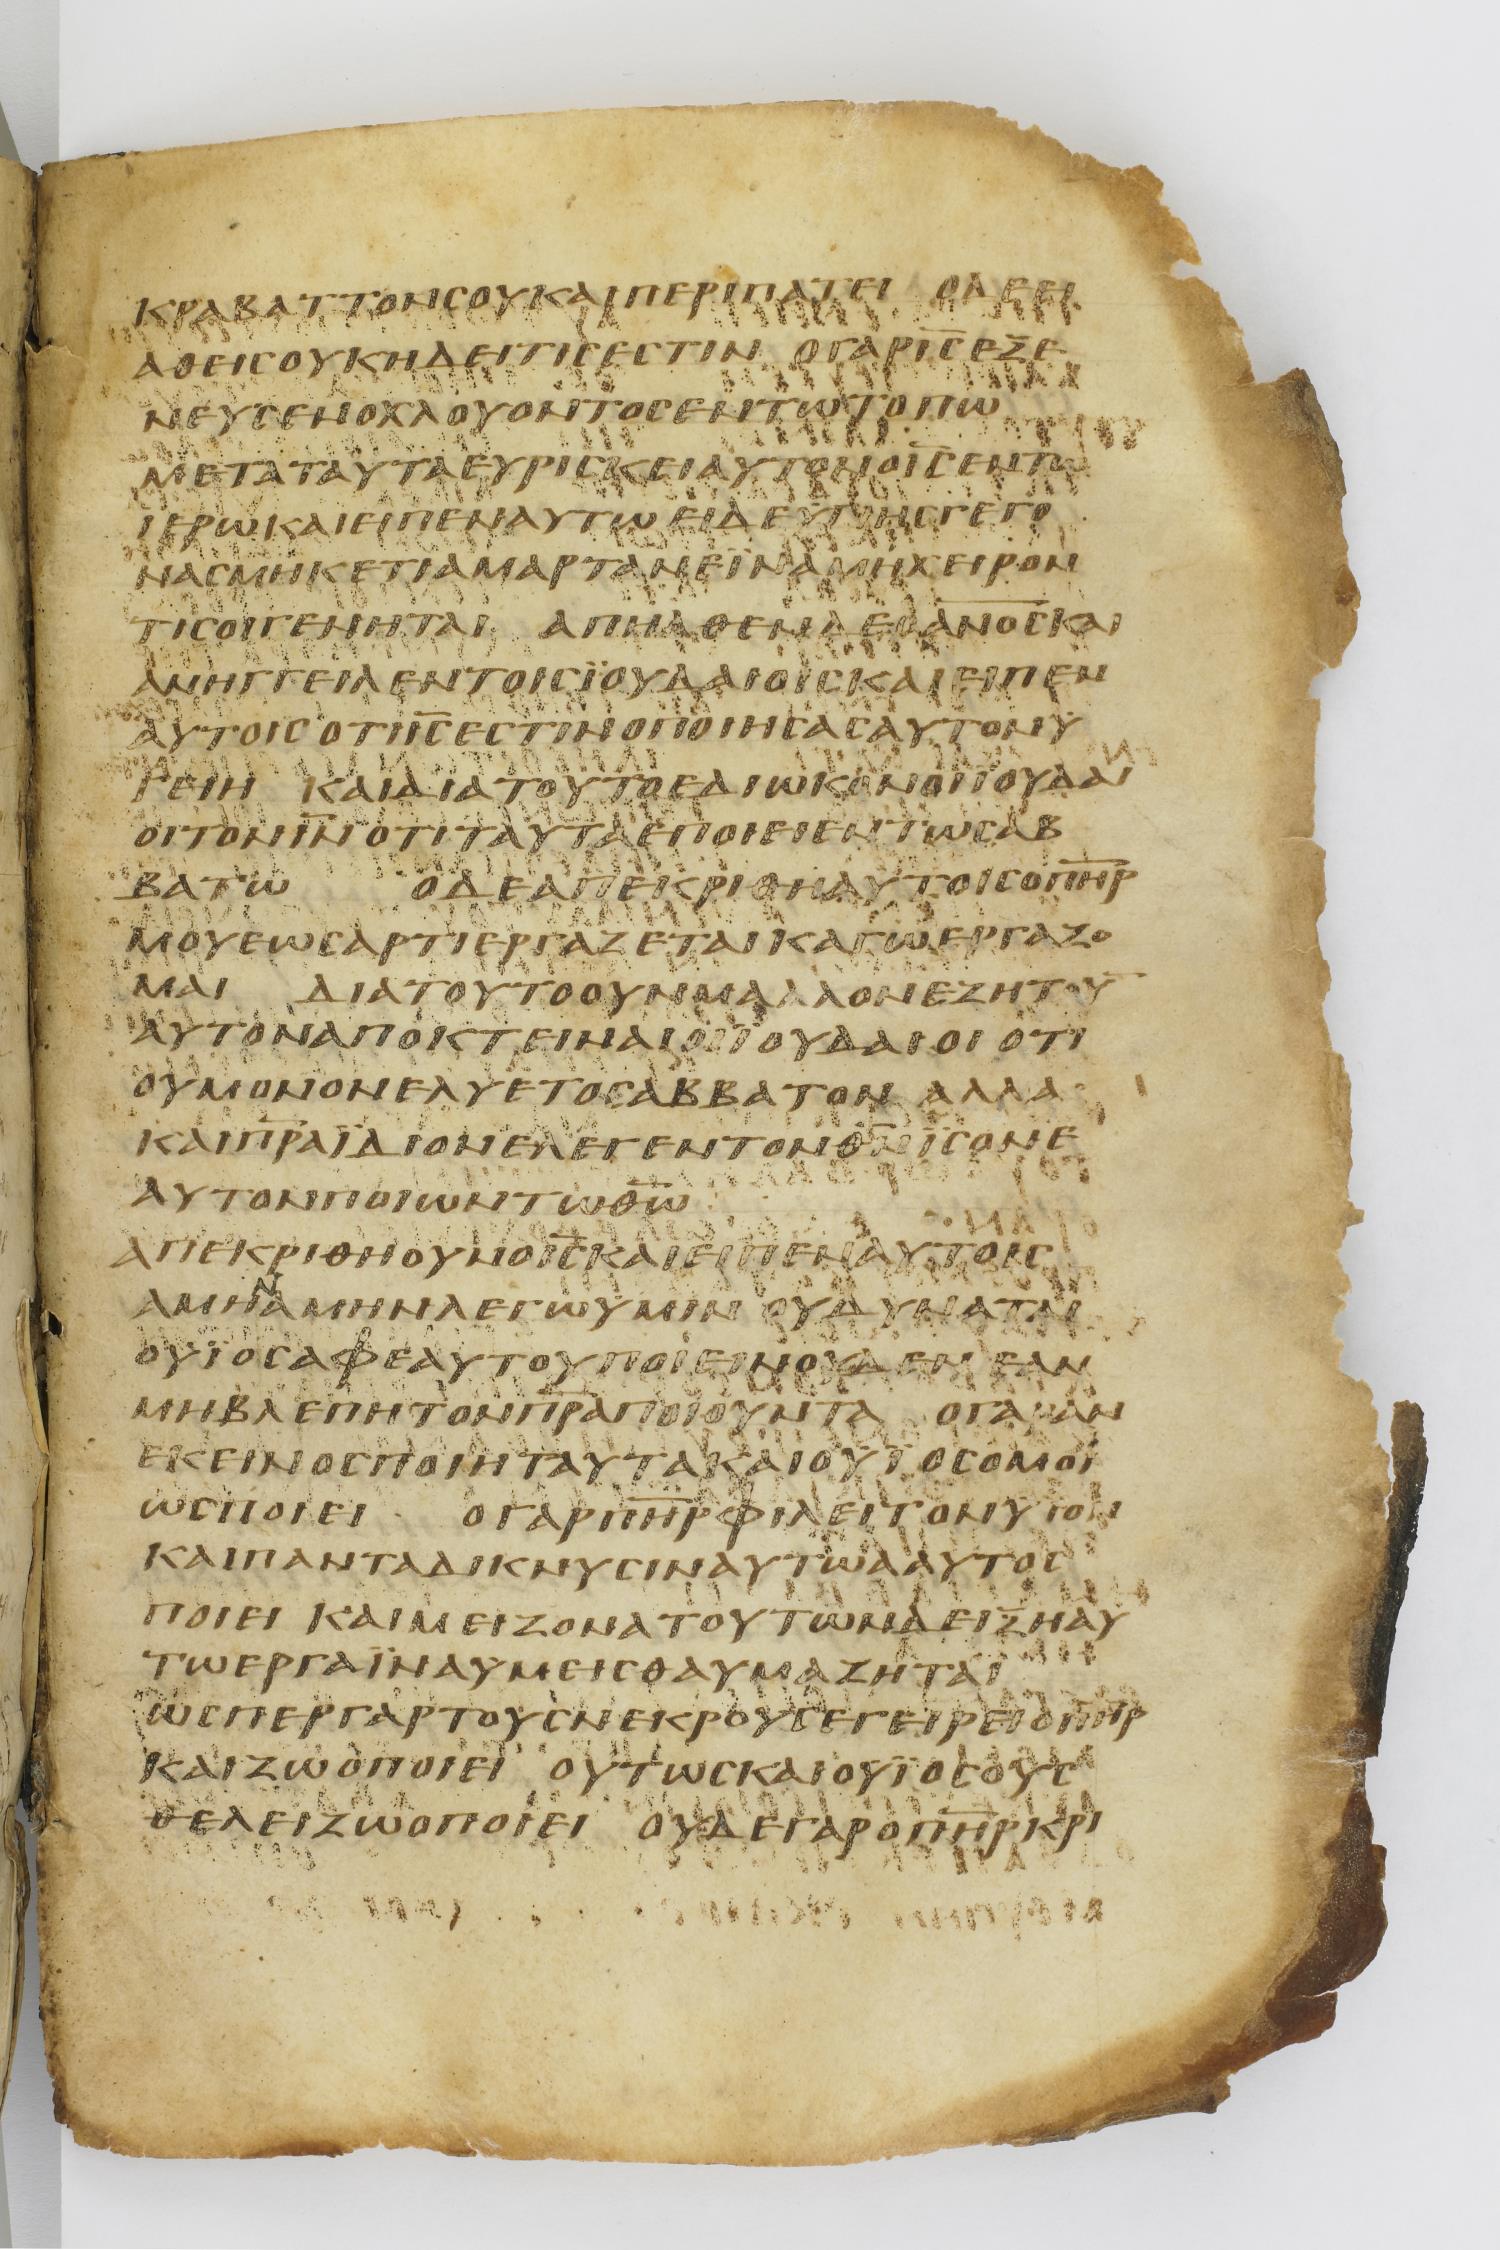 ΚΡΑΒΑΤΤΟΝϹΟΥΚΑΙΠΕΡΙΠΑΤΕΙ ΟΔΕΕΙ
ΑΘΕΙϹΟΥΚΗΔΕΙΤΙϹΕϹΤΙΝ ΟΓΑΡΙ̅Ϲ̅ΕΞΕ
ΝΕΥϹΕΝΟΧΛΟΥΟΝΤΟϹΕΝΤΩΤΟΠΩ
ΜΕΤΑΤΑΥΤΑΕΥΡΙϹΚΕΙΑΥΤΟΝΟΙ̅Ϲ̅ΕΝΤΩ
ΙΕΡΩΚΑΙΕΙΠΕΝΑΥΤΩΕΙΔΕΫΓΙΗϹΓΕΓΟ
ΝΑϹΜΗΚΕΤΙΑΜΑΡΤΑΝΕΪΝΑΜΗΧΕΙΡΟΝ
ΤΙϹΟΙΓΕΝΗΤΑΙ ΑΠΗΛΘΕΝΔΕΟΑ̅Ν̅Ο̅Ϲ̅ΚΑΙ
ΑΝΗΓΓΕΙΛΕΝΤΟΙϹΪΟΥΔΑΙΟΙϹΚΑΙΕΙΠΕΝ
ΑΥΤΟΙϹΟΤΙΙ̅Ϲ̅ΕϹΤΙΝΟΠΟΙΗϹΑϹΑΥΤΟΝΥ
ΓΕΙΗ ΚΑΙΔΙΑΤΟΥΤΟΕΔΙΩΚΟΝΟΙΪΟΥΔΑΙ
ΟΙΤΟΝΙ̅Ν̅ΟΤΙΤΑΥΤΑΕΠΟΙΕΙΕΝΤΩϹΑΒ
ΒΑΤΩ ΟΔΕΑΠΕΚΡΙΘΗΑΥΤΟΙϹΟΠ̅Η̅Ρ̅
ΜΟΥΕΩϹΑΡΤΙΕΡΓΑΖΕΤΑΙΚΑΓΩΕΡΓΑΖΟ
ΜΑΙ ΔΙΑΤΟΥΤΟΟΥΝΜΑΛΛΟΝΕΖΗΤΟΥ̅
ΑΥΤΟΝΑΠΟΚΤΕΙΝΑΙΟΙΪΟΥΔΑΙΟΙΟΤΙ
ΟΥΜΟΝΟΝΕΛΥΕΤΟϹΑΒΒΑΤΟΝΑΛΛΑ
ΚΑΙΠ̅Ρ̅Α̅ΪΔΙΟΝΕΛΕΓΕΝΤΟΝΘ̅Ν̅ΪϹΟΝΕ
ΑΥΤΟΝΠΟΙΩΝΤΩΘ̅Ω̅
ΑΠΕΚΡΙΘΗΟΥΝΟΙ̅Ϲ̅ΚΑΙΕΙΠΕΝΑΥΤΟΙϹ
ΑΜΗΝΑΜΗΝΛΕΓΩΥΜΙΝ ΟΥΔΥΝΑΤΑΙ
ΟΥΪΟϹΑΦΕΑΥΤΟΥΠΟΙΕΙΝΟΥΔΕΝΕΑΝ
ΜΗΒΛΕΠΗΤΟΝΠ̅Ρ̅Α̅ΠΟΙΟΥΝΤΑ ΟΓΑΡΑΝ
ΕΚΕΙΝΟϹΠΟΙΗΤΑΥΤΑΚΑΙΟΥΪΟϹΟΜΟΙ
ΩϹΠΟΙΕΙ ΟΓΑΡΠ̅Η̅Ρ̅ΦΙΛΕΙΤΟΝΥΙΟΝ
ΚΑΙΠΑΝΤΑΔΙΚΝΥϹΙΝΑΥΤΩΑΑΥΤΟϹ
ΠΟΙΕΙ ΚΑΙΜΕΙΖΟΝΑΤΟΥΤΩΝΔΕΙΞΗΑΥ
ΤΩΕΡΓΑΪΝΑΥΜΕΙϹΘΑΥΜΑΖΗΤΑΙ
ΩϹΠΕΡΓΑΡΤΟΥϹΝΕΚΡΟΥϹΕΓΕΙΡΕΙΟΠ̅Η̅Ρ̅
ΚΑΙΖΩΟΠΟΙΕΙ ΟΥΤΩϹΚΑΙΟΥΪΟϹΟΥϹ
ΘΕΛΕΙΖΩΟΠΟΙΕΙ ΟΥΔΕΓΑΡΟΠ̅Η̅Ρ̅ΚΡΙ